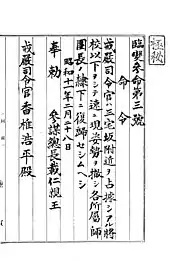 極秘
臨變參命第三號
命令
戒嚴司令官ハ三宅坂附近ヲ占據シアル將
校以下ヲシテ速ニ現姿勢ヲ撤シ各所屬師
團長ノ隷下ニ復歸セシムヘシ
奉勅
昭和十一年二月二十八日
參謀總長載仁親王
戒嚴司令官香椎浩平殿